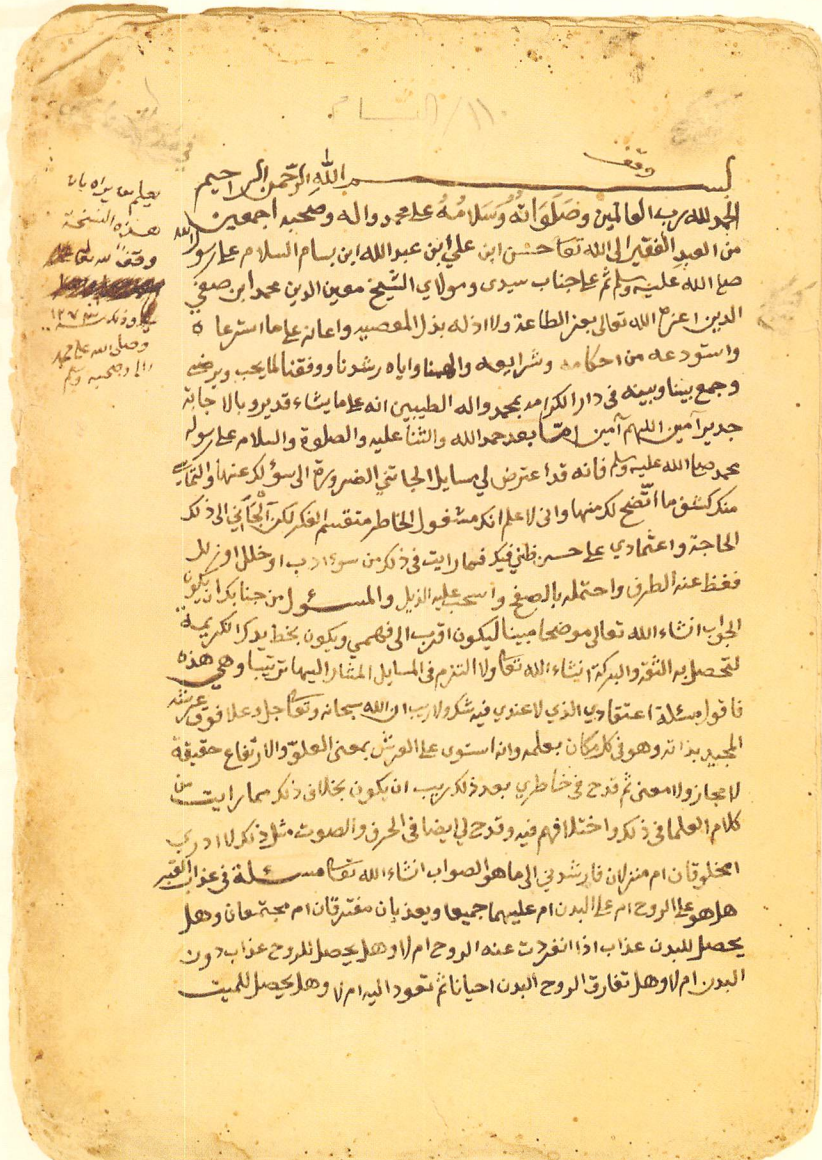 وقف
بسم الله الرحمن الرحيم
الحمد لله رب العالمين وصلواته وسلامه على محمد واله وصحبه اجمعين
من العبد الفقير الى الله تعا حسن ابن علي ابن عبد الله ابن بسام السلام على رسول الله
صلى الله عليه وسلم ثم على جناب سيدي ومولاي الشيخ معين الدين محمد ابن صفي
الدين اعزه الله تعالى بعز الطاعة ولا اذله بذل المعصيه واعانه على ما استرعاه
واستودعه من احكامه وشرايعه والهمنا واياه رشدنا ووفقنا لما يحب ويرضى
وجمع بيننا وبينه في دار الكرامه بمحمد واله الطيبين انه على ما يشاء قدير وبالاجابة
جدير آمين اللهم آمين اما بعد حمد الله والثنا عليه والصلوة والسلام على رسوله
محمد صلى الله عليه وسلم فانه قد اعترض لي مسايل الجاتني الضرورة الى سؤلك عنها والتماس
منك كشف ما اتضح لك منها واني لاعلم انك مشغول الخاطر متقسم الفكر لكن الجأني الى ذلك
الحاجة واعتمادي على حسن ظني فيك فما رايت في ذلك من سوء ادب او خلل او زلل
فغظ عنه الطرف واحتمله بالصفح واسحب عليه الذيل والمسئول من جنابك ان يكون
الجواب انشاء الله تعالى موضحا مبينا ليكون اقرب الى فهمي ويكون بخط يدك الكريمة
لتحصل به الثقة والبركة انشاء الله تعا ولا التزم في المسايل المشار اليها ترتيبا وهي هذه
فاقول مسئلة اعتقادي الذي لا عندي فيه شك ولا ريب ان الله سبحانه وتعا جل وعلا فوق عرشه
المجيد بذاته وهو في كل مكان بعلمه وانه استوى على العرش بمعنى العلو والارتفاع حقيقة
لا مجاز ولا معنى ثم قدح في خاطري بعد ذلك ريب ان يكون بخلاف ذلك مما رايت من
كلام العلما في ذلك واختلافهم فيه وقدح لي ايضا في الحرف والصوت مثل ذلك لا ادري
امخلوقان ام منزلان فارشدني الى ما هو الصواب انشاء الله تعا مسئلة في عذاب القبر
هل هو على الروح ام على البدن ام عليهما جميعا ويعذبان مفترقان ام مجتمعان وهل
يحصل للبدن عذاب اذا انفردت عنه الروح ام لا وهل يحصل للروح عذاب دون
البدن ام لا وهل تفارق الروح البدن احيانا ثم تعود اليه ام لا وهل يحصل للميت
يعلم من يراه بان
هذه النسخة
وقف لله تعالى
وذلك سنة ١٢٧٣
وصلى الله على محمد
واله وصحبه وسلم